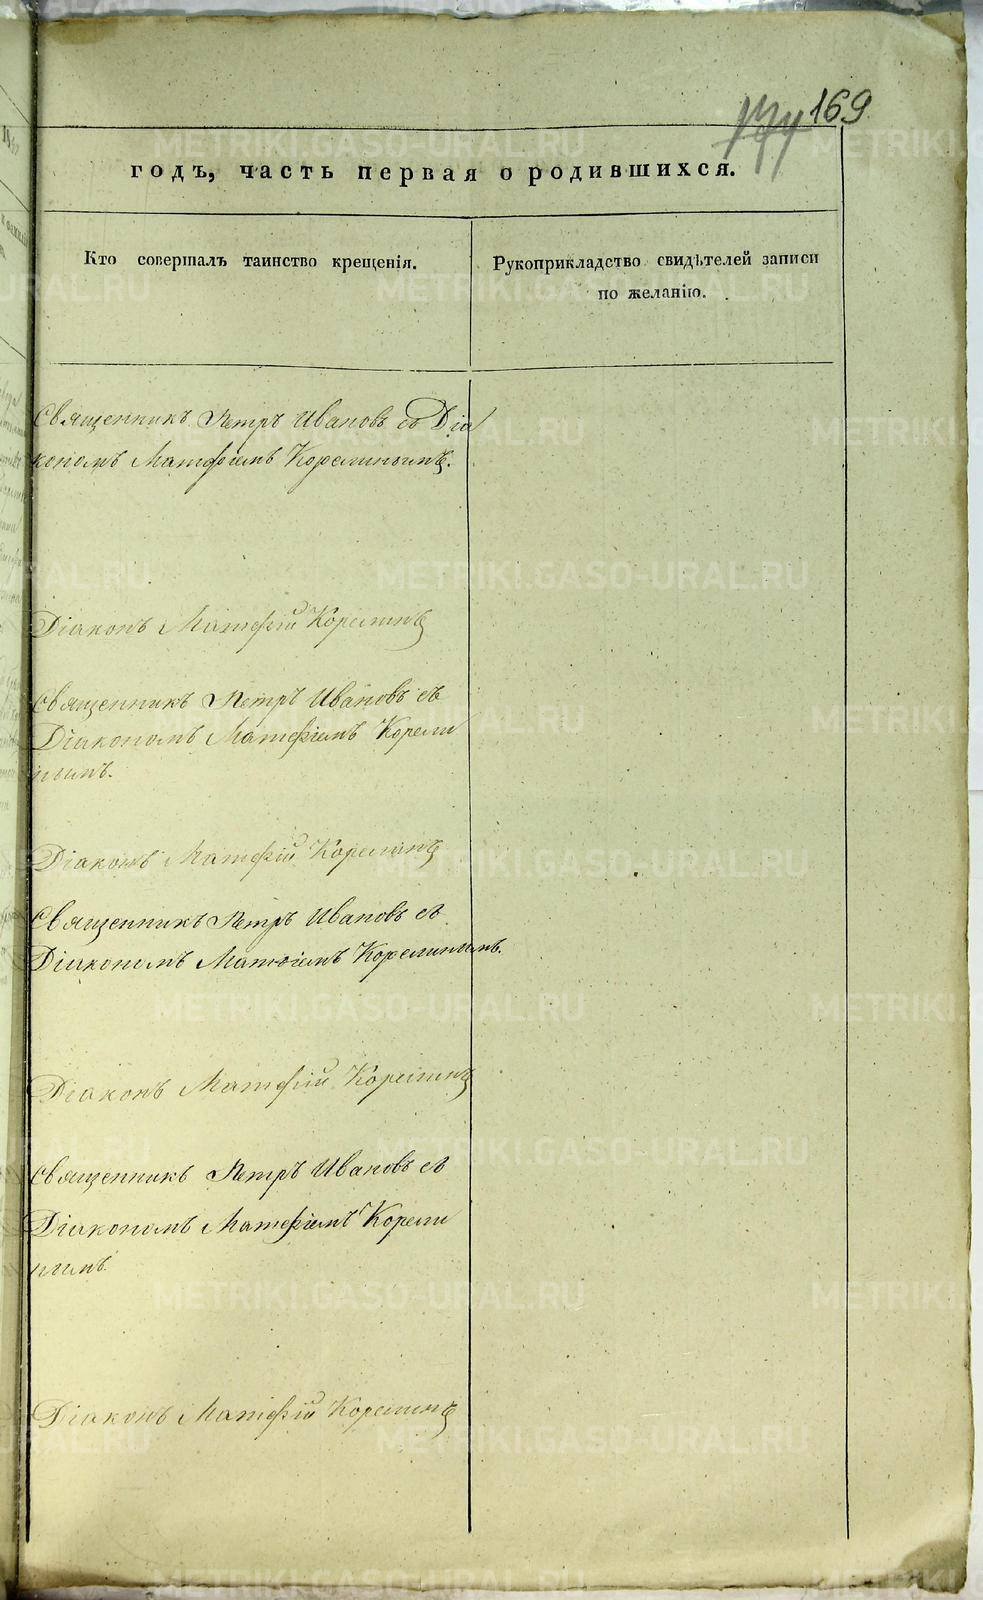 174 169
годъ, часть первая о родившихся.
Кто совершалъ таинство крещенія.
Рукоприкладство свидѣтелей записи
по желанію.
Священникъ Петръ Ивановъ съ Діа
кономъ Матфіемъ Корелинымъ.
Діаконъ Матфій Корелинъ
Священникъ Петръ Ивановъ съ
Діакономъ Матфіемъ Корели
нымъ.
Діаконъ Матфій Корелинъ
Священникъ Петръ Ивановъ съ
Діакономъ Матфіемъ Корелинымъ.
Діаконъ Матфій Корелинъ
Священникъ Петръ Ивановъ съ
Діакономъ Матфіемъ Корели
нымъ.
Діаконъ Матфій Корелинъ
METRIKI.GASO-URAL.RU